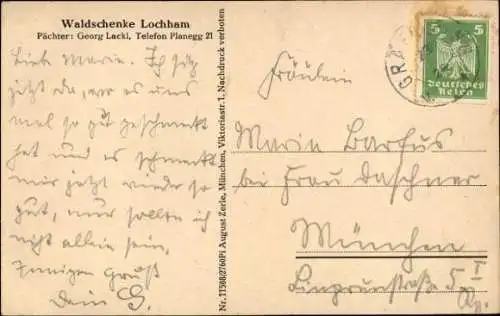 Waldschenke Lochham
Pächter: Georg Lackl, Telefon Planegg 21
Liebe Marie. Ich sitz
jetzt da, wo es uns
mal so gut geschmeckt
hat und es schmeckt
mir jetzt wieder so
gut, nur sollte ich
nicht allein sein.
Innigen Gruß
Dein G.
Nr. 11508/2760Pl August Zerle, München, Viktoriastr 1. Nachdruck verboten
GR
5 5
Deutsches
Reich
Fräulein
Maria Barfus
bei Frau Daschner
München
Linprunstraße 5 I